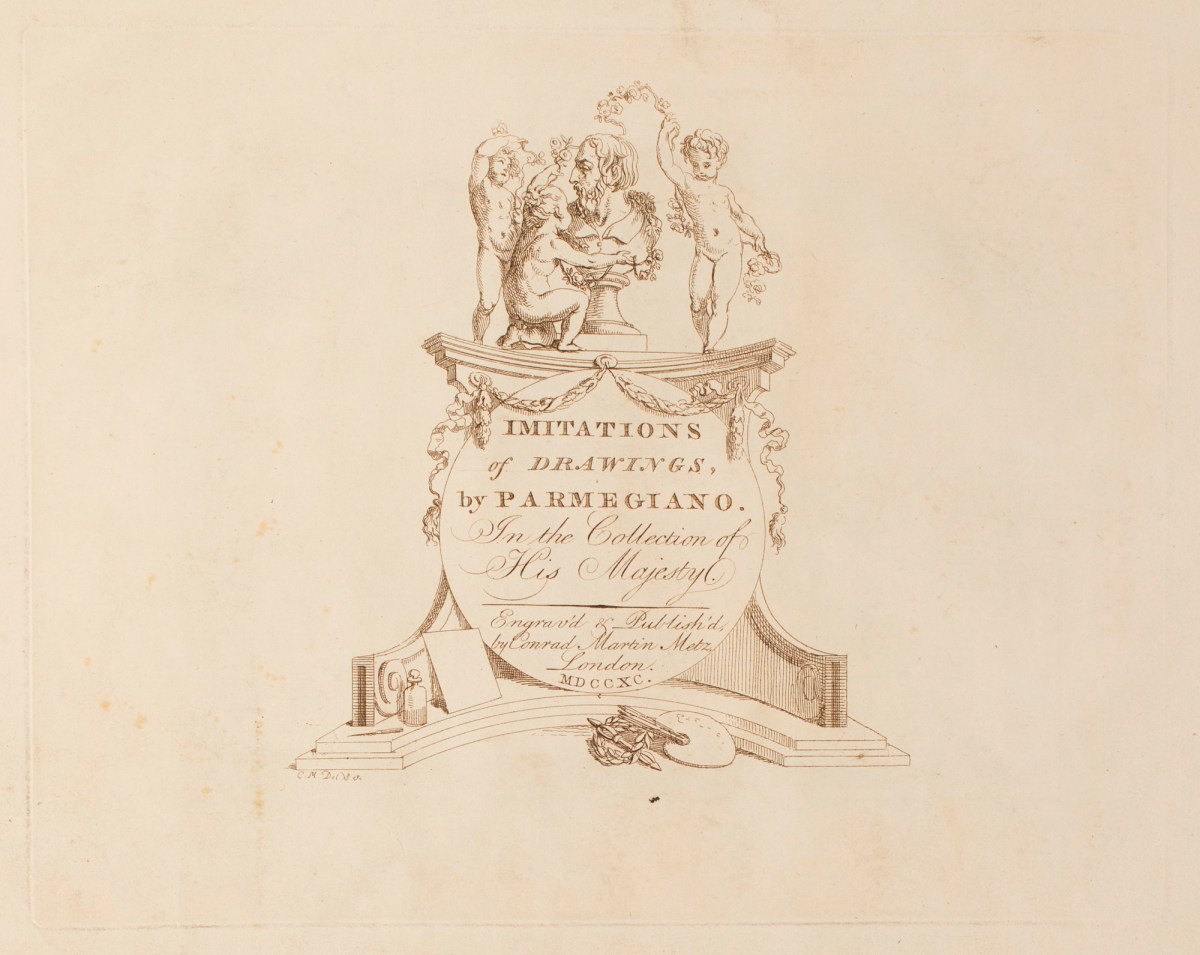 IMITATIONS
of DRAWINGS,
by PARMEGIANO.
In the Collection of
His Majesty.
Engrav'd & Publish'd,
by Conrad Martin Metz
London.
MDCCXC.
C. M. Del